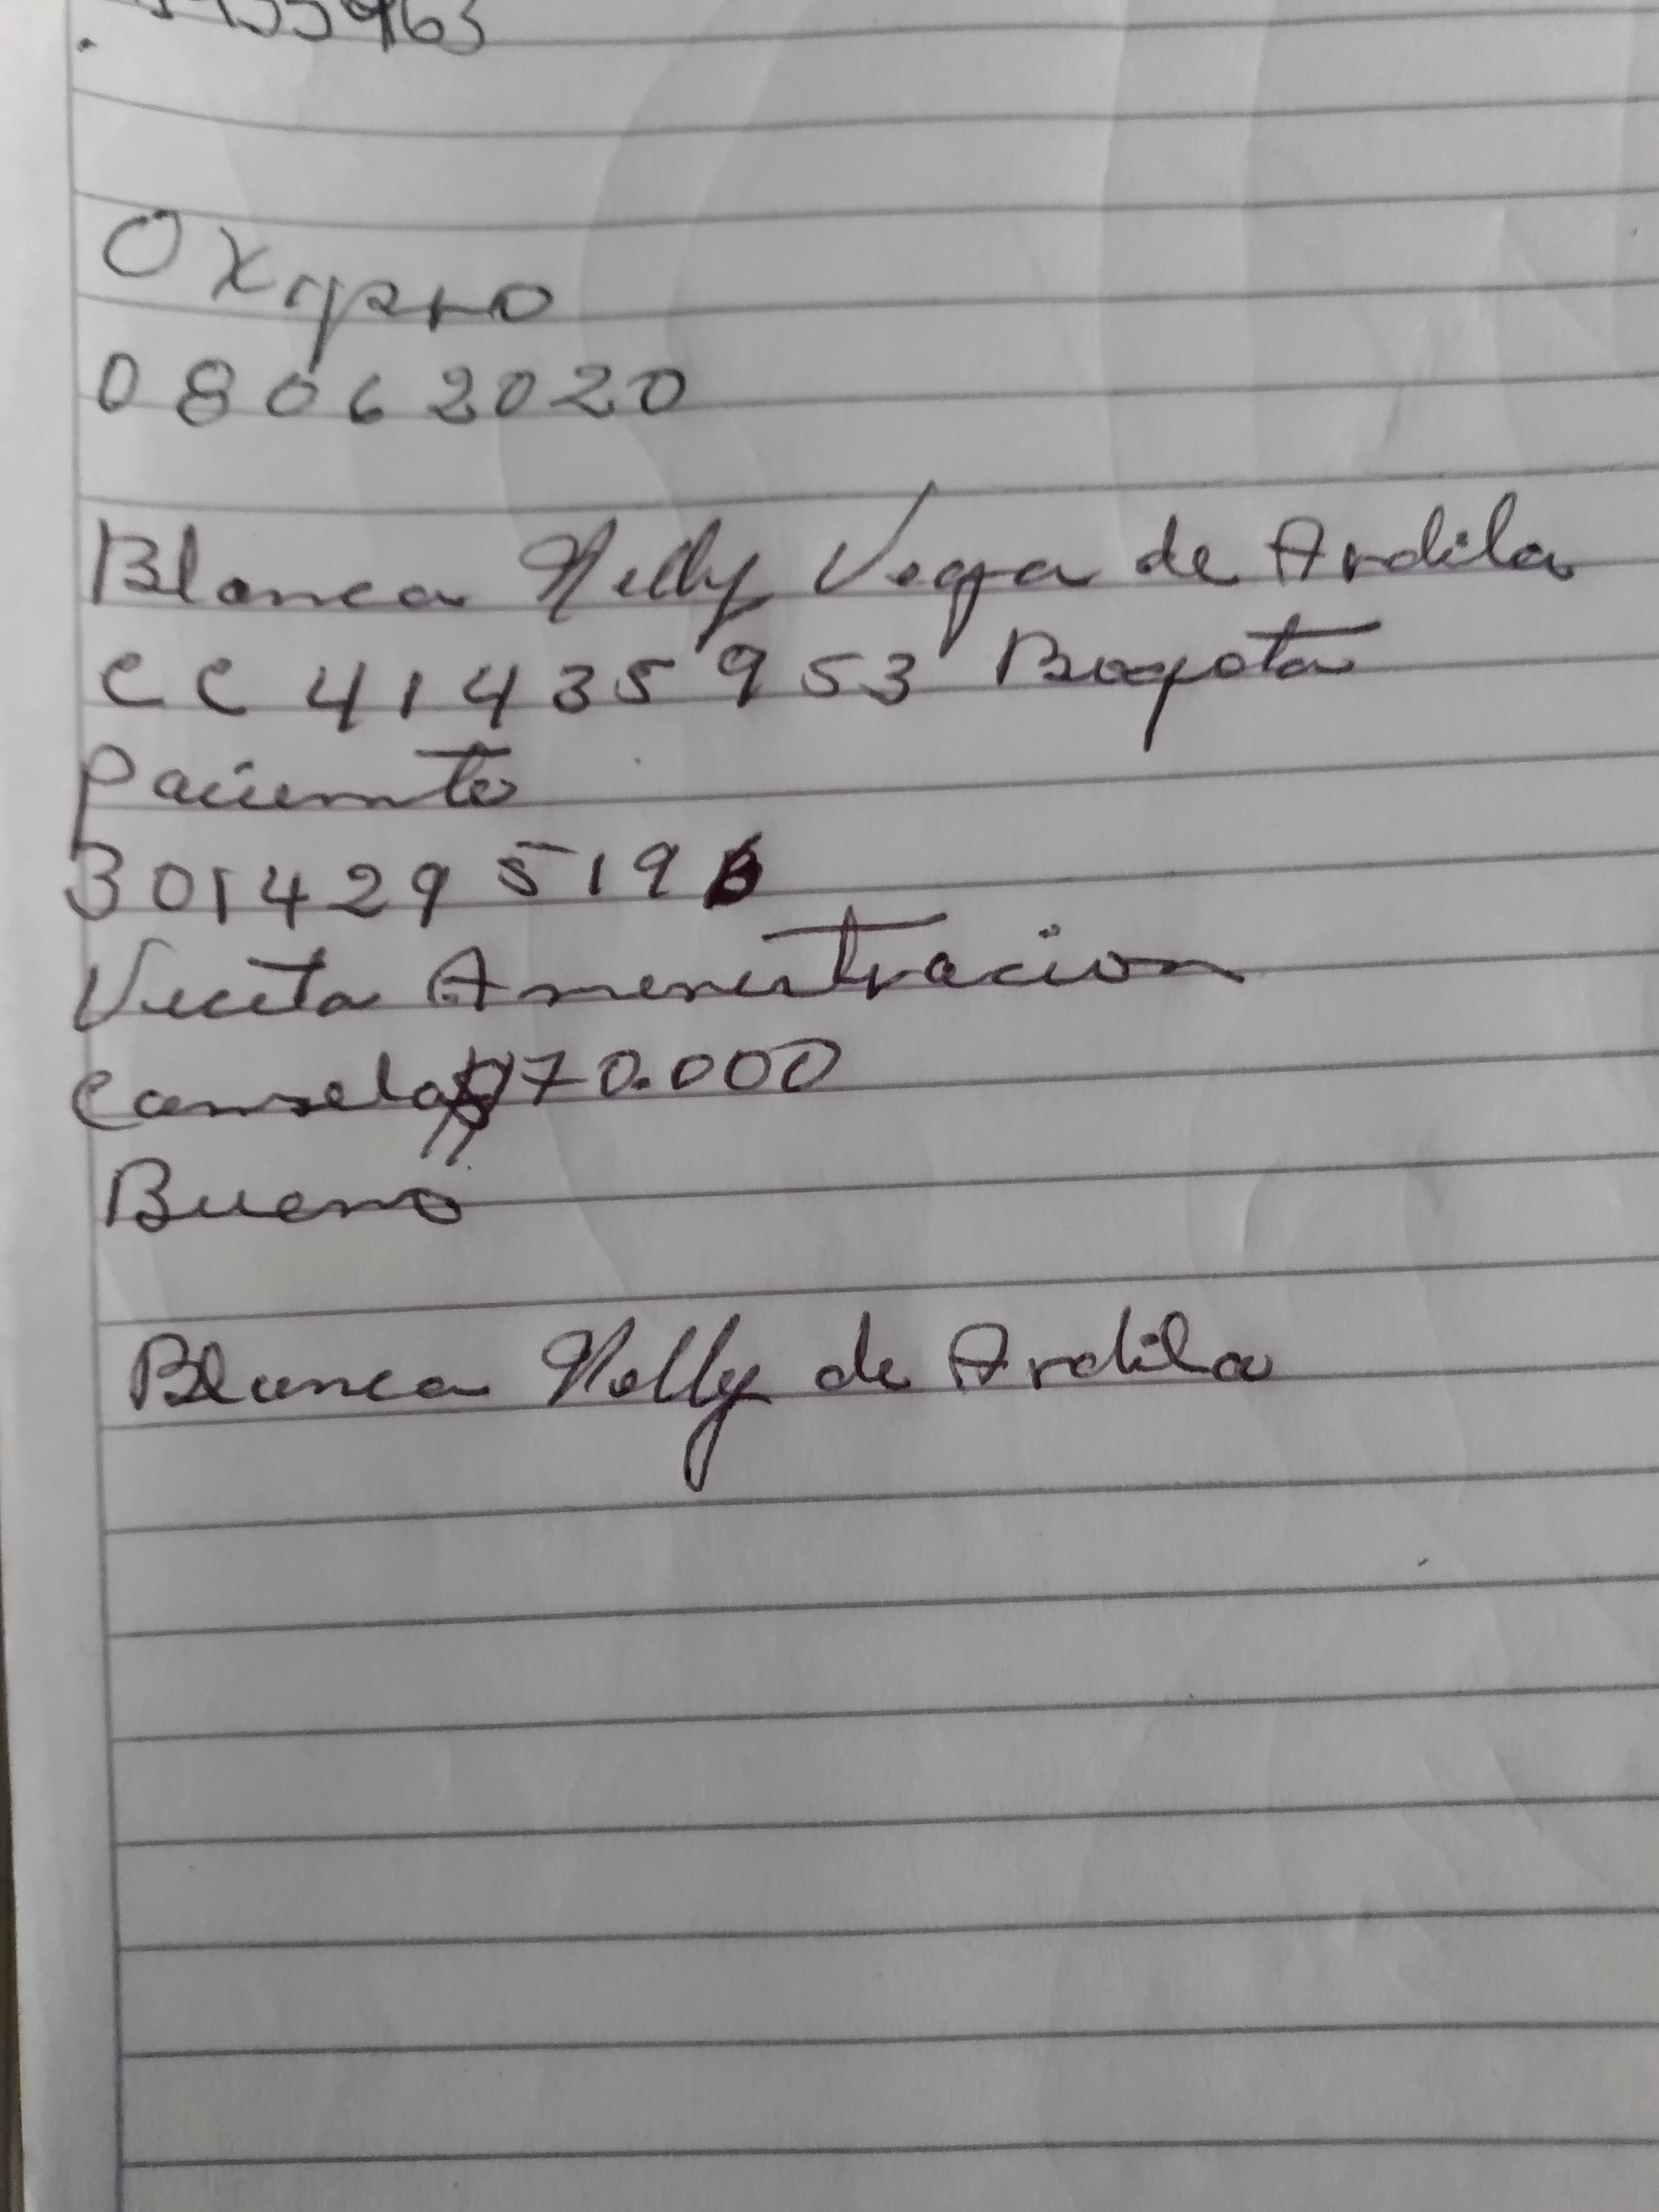 Oxypro
08062020
Blanca Nelly Vega de Ardila
CC 41435953 Bogota
Paciente
301429519
Vicita Amenistracion
Cansela $70.000
Bueno
Blanca Nelly de Ardila